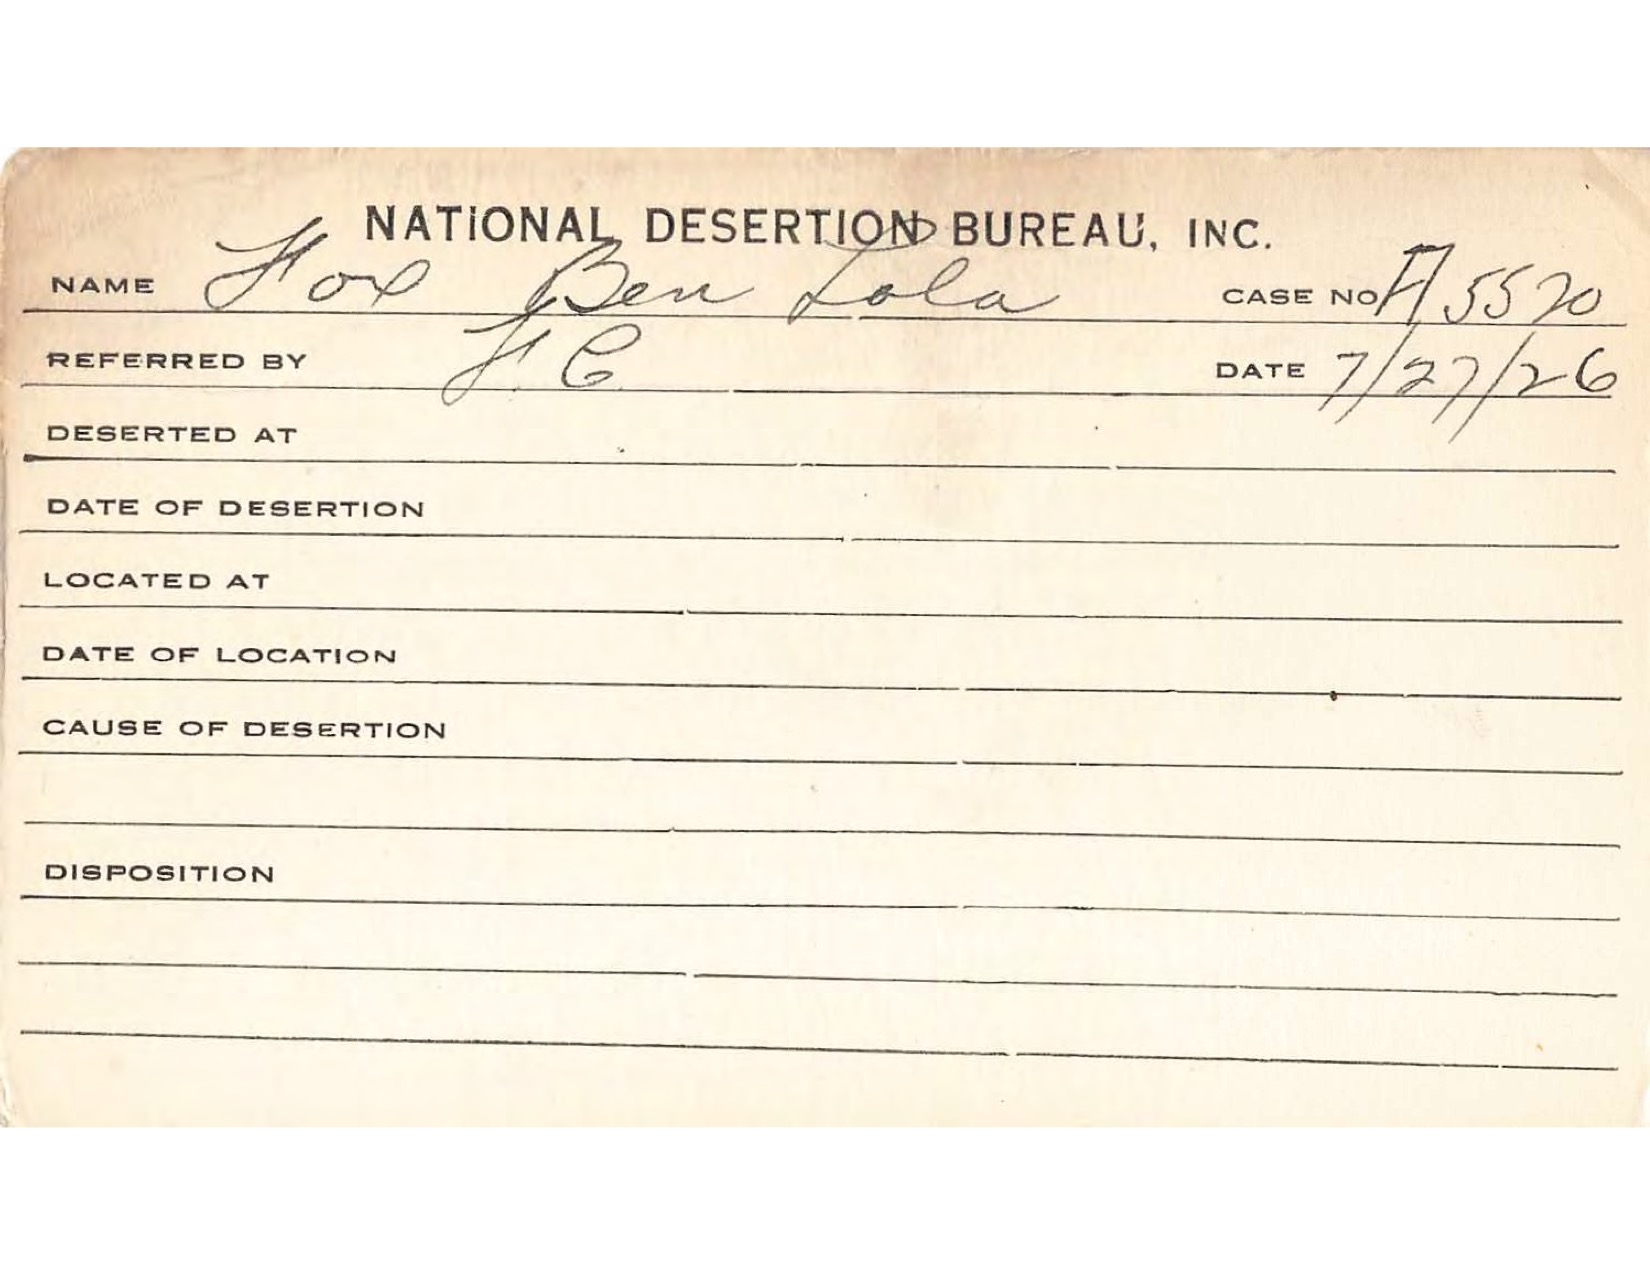 NATIONAL DESERTION BUREAU, INC.
NAME Fox Ben Lola CASE NO A 5520
REFERRED BY F. C DATE 7/27/26
DESERTED AT
DATE OF DESERTION
LOCATED AT
DATE OF LOCATION
CAUSE OF DESERTION
DISPOSITION